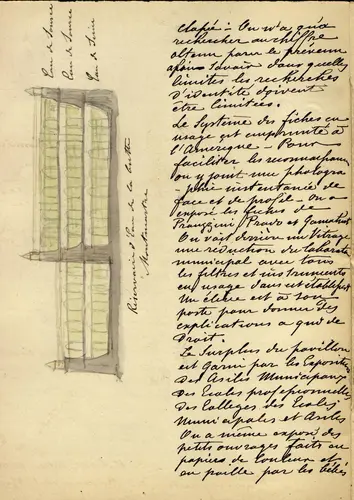 Eau de Source
Eau de Source
Eau de Seine
Réservoirs d'Eau de la butte
Montmartre
On n'a qu'à
rechercher au chiffre
obtenu pour le prévenu
après savoir dans quelles
limites les recherches
d'identité doivent
être limitées.
Le Système des fiches en
usage est emprunté à
l'Amérique - Pour
faciliter les reconnaissances
on y joint une photogra
-phie instantanée de
face et de profil - on a
exposé les fiches de
Franzini, Prado et Gamahut
On voit derrière un Vitrage
une réduction du laborat.
municipal avec tous
les filtres et instruments
en usage dans cet établisst
Un élève est à son
poste pour donner des
explications a qui de
droit.
Le Surplus du pavillon
est garni par les Expositions
des Asiles Municipaux
des Ecoles professionnelles
des Collèges des Ecoles
Municipales et Asiles
On a même exposé des
petits ouvrages faits en
papiers de couleur et
en paille par les bébés